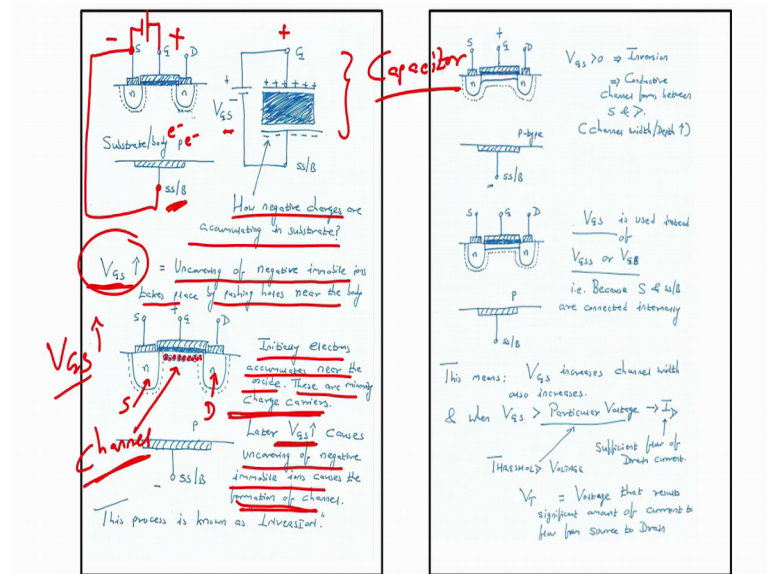 - +
S G D
n n
Substrate/body p e- e-
SS/B
+
G
+ + + + + + +
+
VGS
-
- - - - -
SS/B
} Capacitor
How negative charges are
accumulating in substrate?
VGS ↑ = Uncovering of negative immobile ions
takes place by pushing holes near the body
VGS ↑
S + G D
n n
S D
Channel
P
- SS/B
Initially electrons
accumulates near the
oxide. These are minority
charge carriers.
Later VGS ↑ causes
uncovering of negative
immobile ions causes the
formation of channel.
This process is known as Inversion."
+
S G D
n n
P-type
SS/B
-
VGS >0 ⇒ Inversion
⇒ Conductive
channel forms between
S & D.
(Channel width/Depth ↑)
S G D
n n
P
SS/B
VGS is used instead
of
VGSS or VGB
i.e. Because S & SS/B
are connected internally
This means: VGS increases channel width
also increases.
& when VGS > Particular Voltage → ID
THRESHOLD VOLTAGE
Sufficient flow of
Drain current.
VT = Voltage that results
significant amount of current to
flow from source to Drain